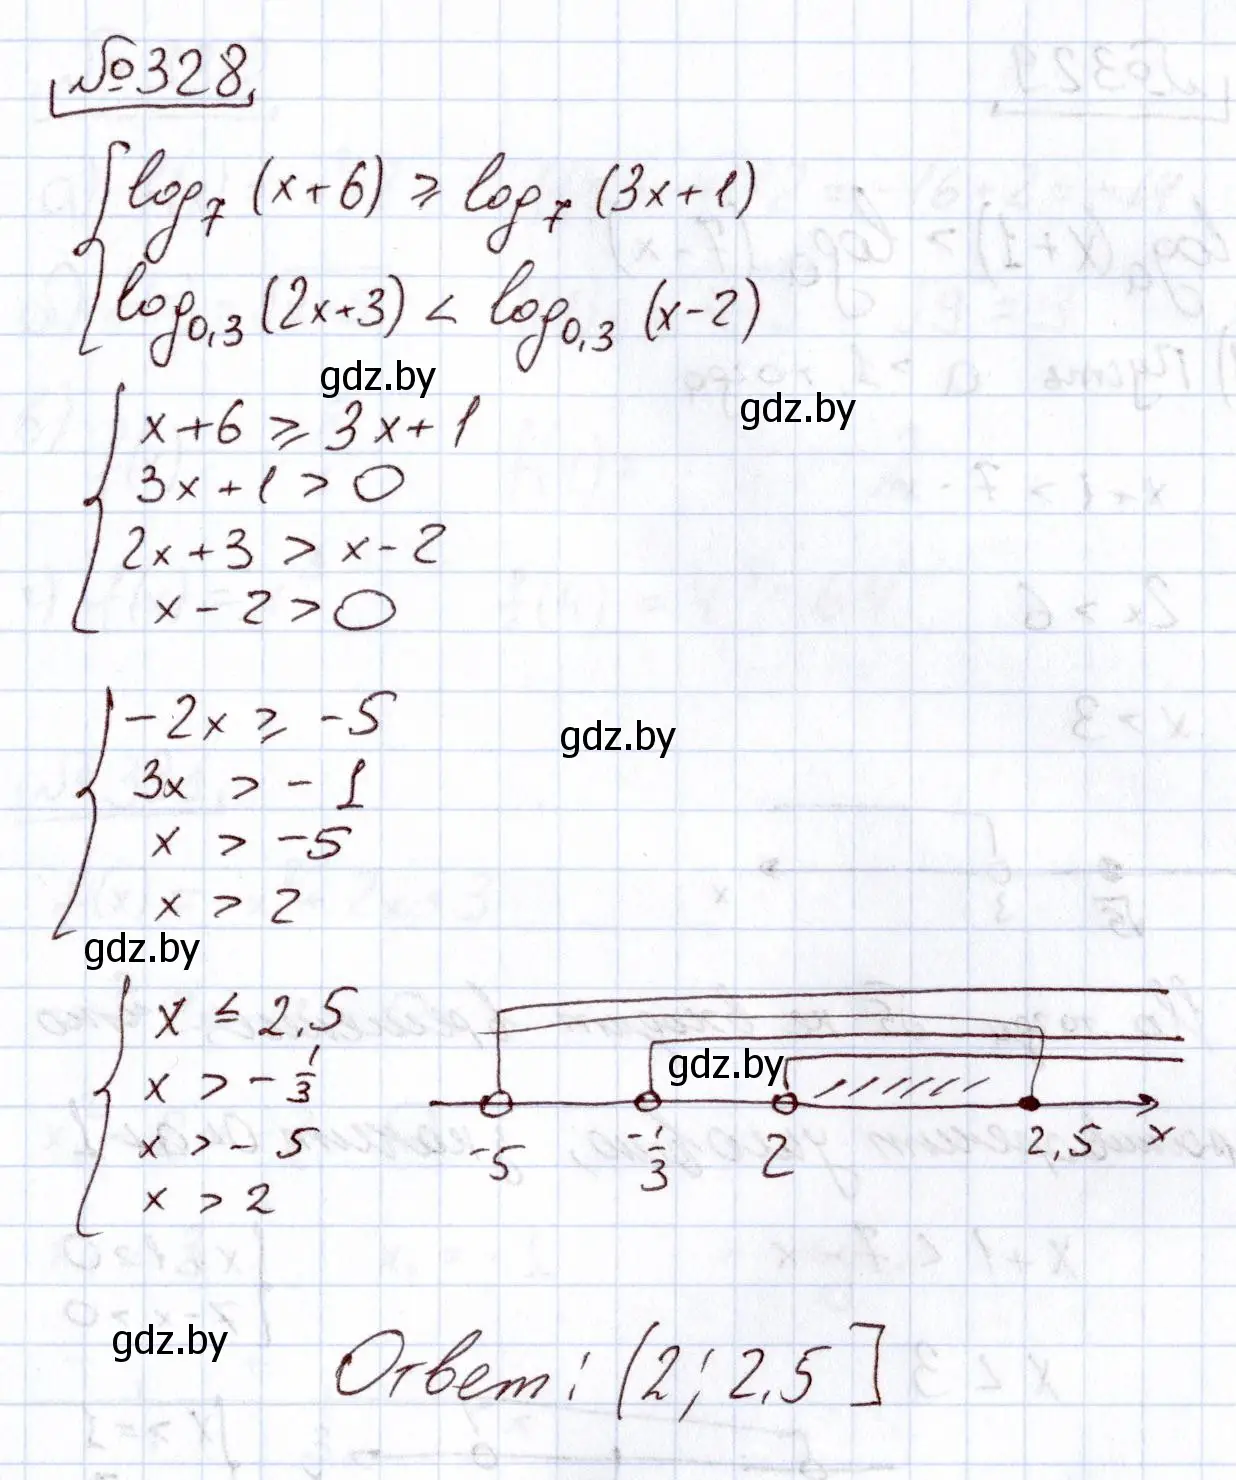 №328
log₇(x+6) ⩾ log₇(3x+1)
log₀,₃(2x+3) < log₀,₃(x-2)
gdz.by
gdz.by
x+6 ⩾ 3x+1
3x+1 > 0
2x+3 > x-2
x-2 > 0
-2x ⩾ -5
gdz.by
3x > -1
x > -5
x > 2
gdz.by
x ≤ 2,5
x > -1/3
x > -5
x > 2
gdz.by
-5 -1/3 2 2,5 x
gdz.by
Ответ: (2; 2,5]